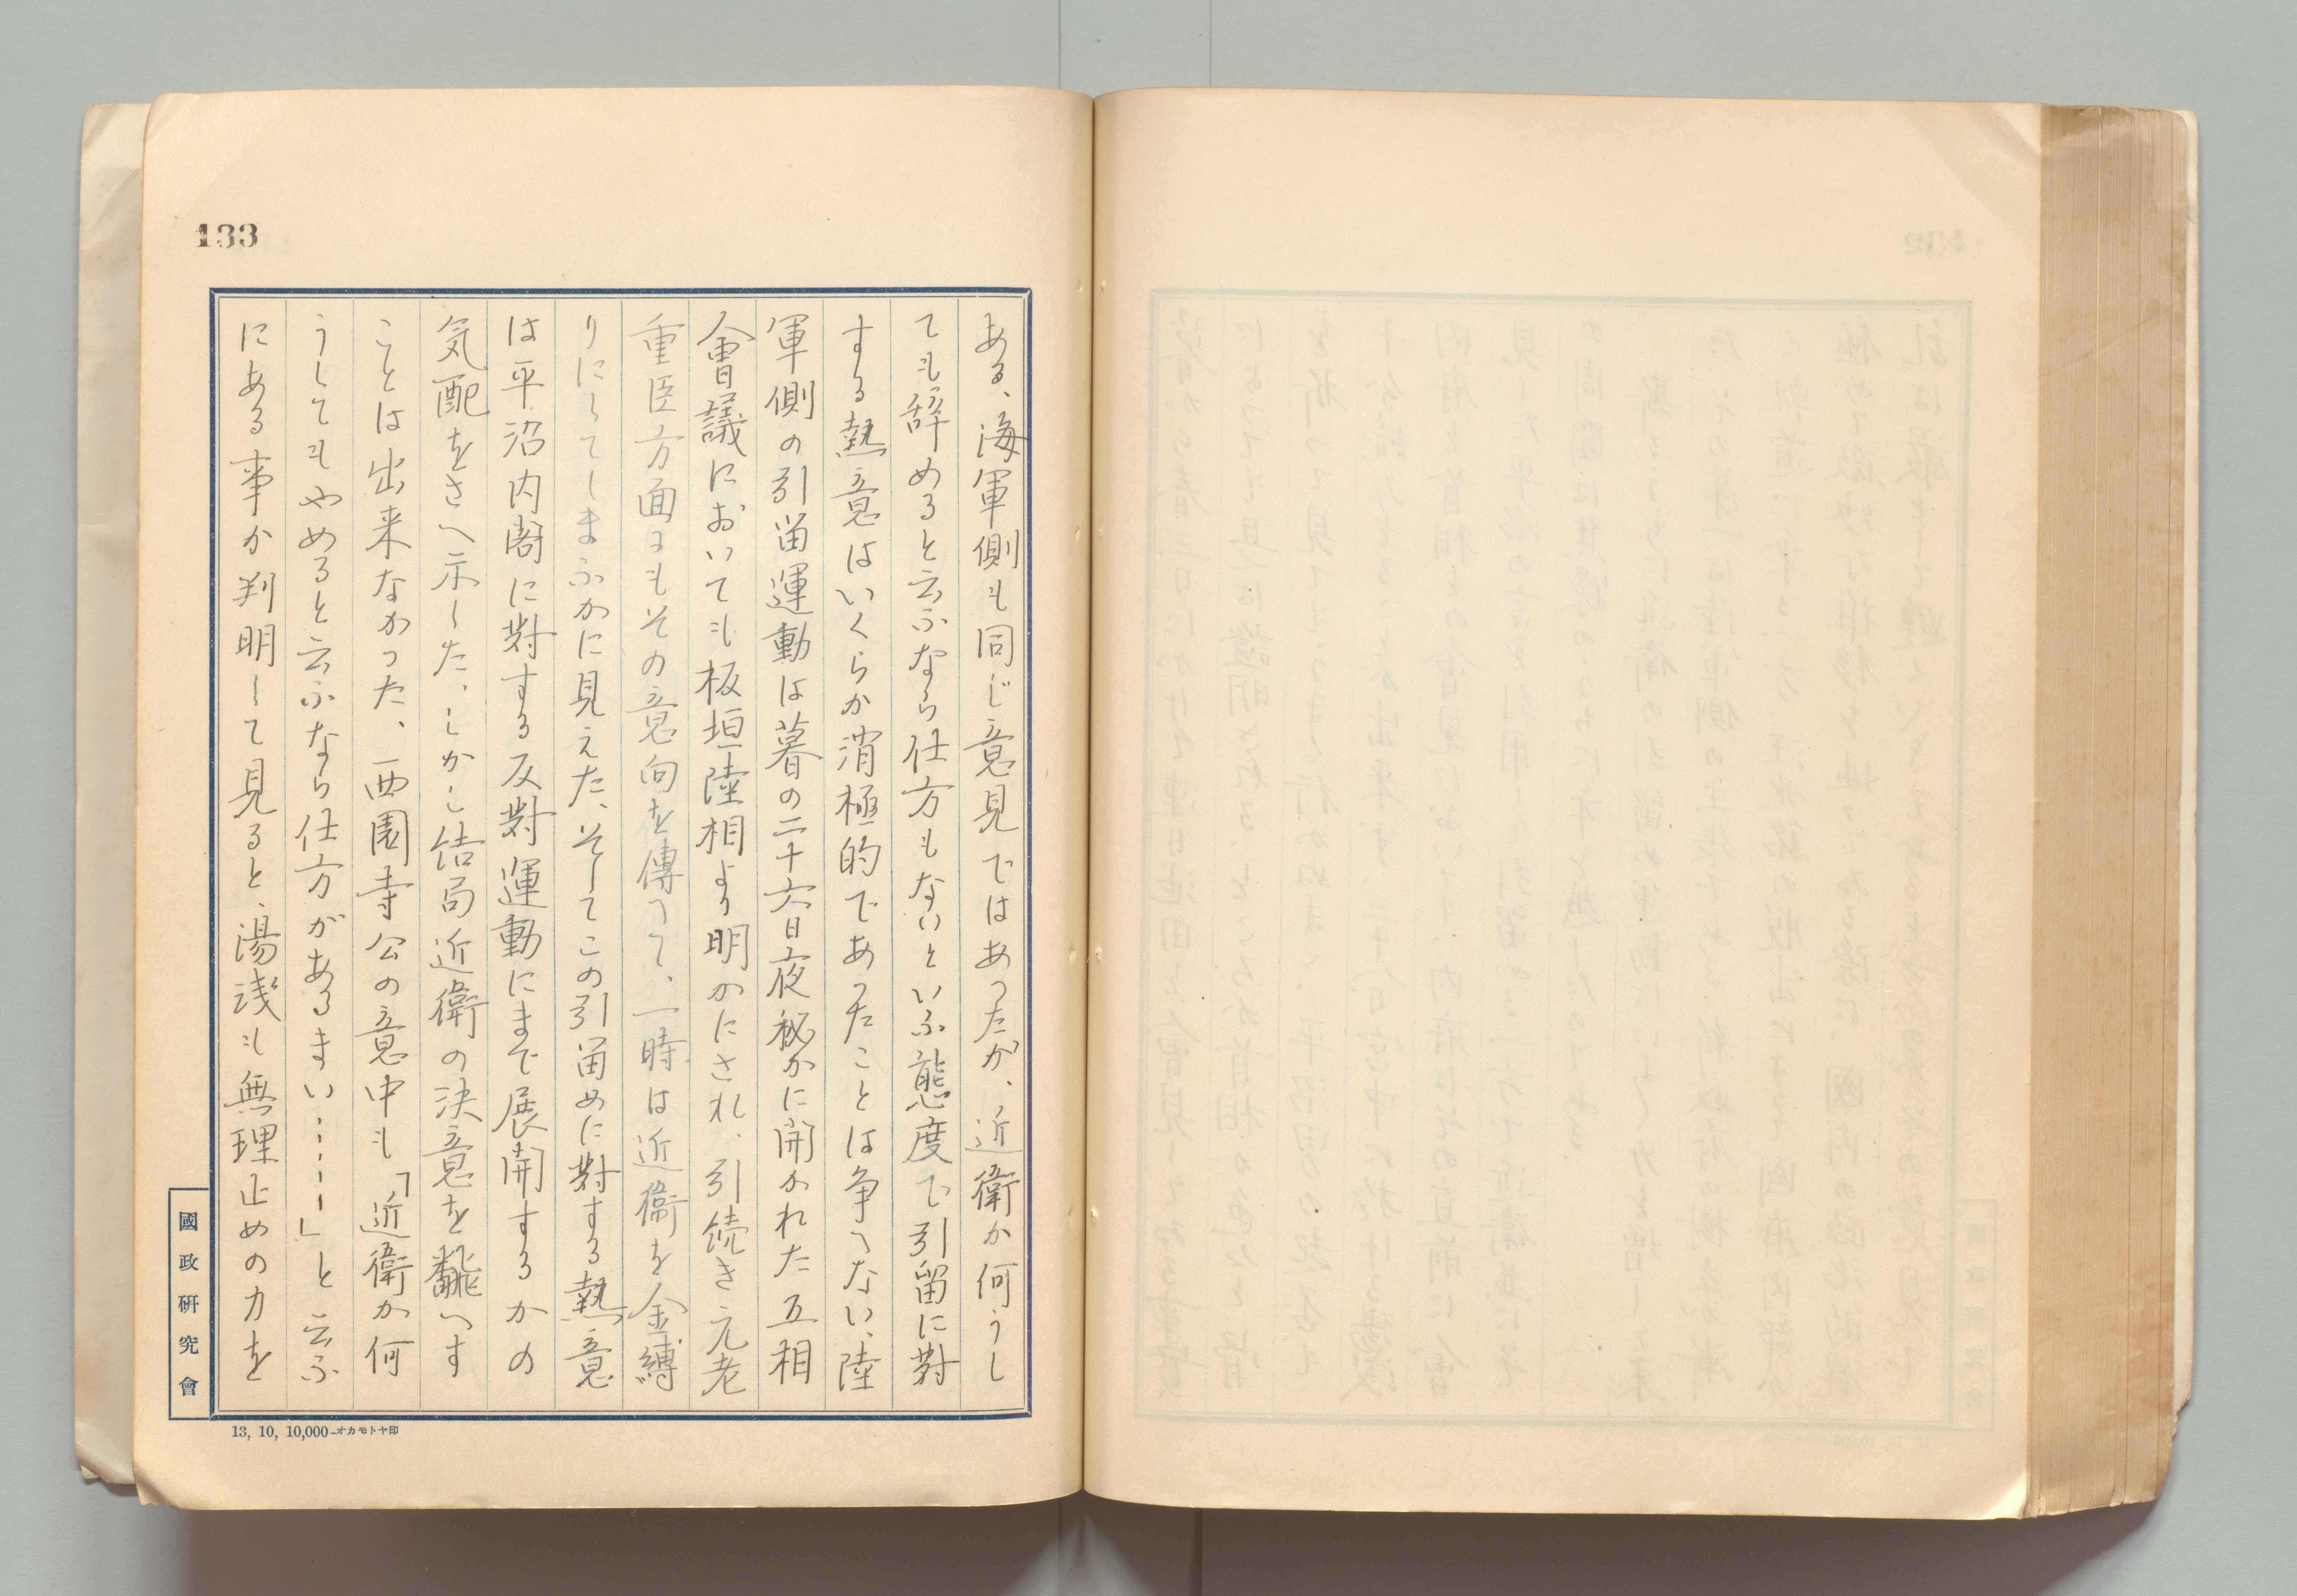 133
ある、海軍側も同じ意見ではあったが、近衛か何うし
ても辞めると云ふなら仕方もないといふ態度で引留に對
する熱意はいくらか消極的であったことは争へない、陸
軍側の引留運動は暮の二十六日夜秘かに開かれた五相
會議においても板垣陸相より明かにされ、引続き元老
重臣方面にもその意向を傳へて、一時は近衛を金縛
りにしてしまふかに見えた、そしてこの引留めに對する熱意
は平沼内閣に對する反對運動にまで展開するかの
気配をさへ示した、しかし結局近衛の決意を飜へす
ことは出来なかった、西園寺公の意中も「近衛か何
うしてもやめると云ふなら仕方があるまい……」と云ふ
にある事か判明して見ると、湯浅も無理止めの力を
國政研究會
13, 10, 10,000-オカモトヤ印